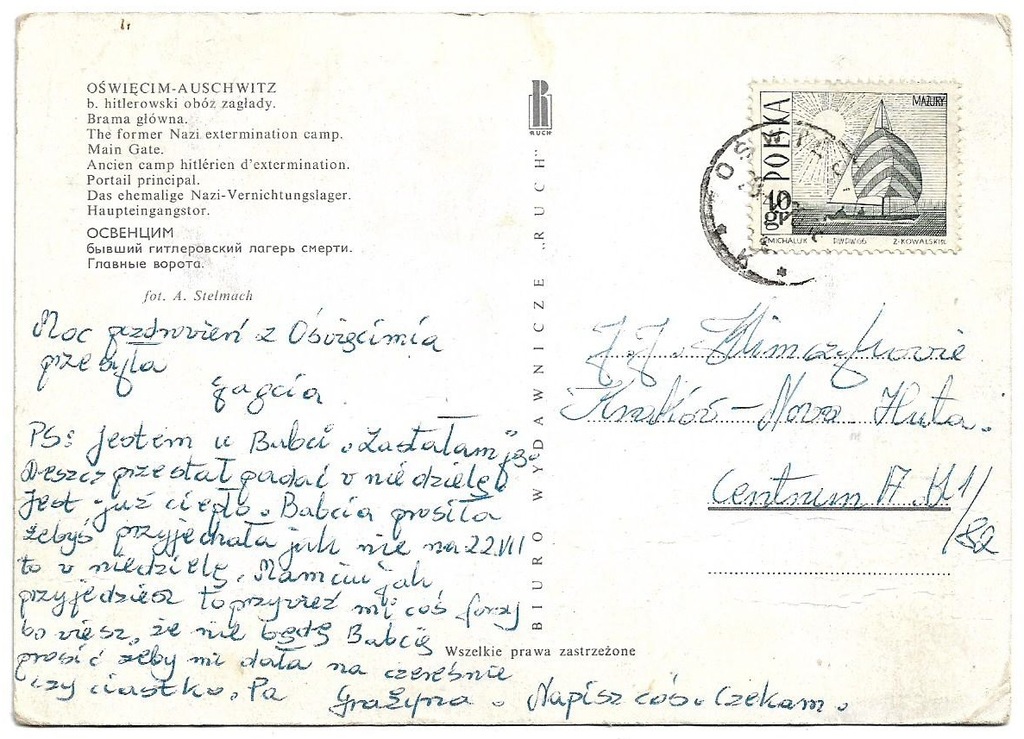 OŚWIĘCIM-AUSCHWITZ
b. hitlerowski obóz zagłady.
Brama główna.
The former Nazi extermination camp.
Main Gate.
Ancien camp hitlérien d'extermination.
Portail principal.
Das ehemalige Nazi-Vernichtungslager.
Haupteingangstor.
ОСВЕНЦИМ
бывший гитлеровский лагерь смерти.
Главные ворота.
fot. A. Stelmach
Moc pozdrowień z Oświęcimia
przesyła
Gagcia
PS: Jestem u Babci. Zastałam ją.
Deszcz przestał padać w niedzielę
Jest już ciepło. Babcia prosiła
żebyś przyjechała jak nie na 22.VII
to w niedzielę. Mamciu jak
przyjedziesz to przywieź mi coś forsy
bo wiesz, że nie będę Babcię
prosić żeby mi dała na czereśnie
czy ciastko. Pa Grażyna. Napisz coś. Czekam.
RUCH
BIURO WYDAWNICZE „RUCH"
Wszelkie prawa zastrzeżone
POLSKA
10 gr
MAZURY
MICHALUK PWPW 66 Z. KOWALSKI
OŚWIĘCI
J.J. Klimczykowie
Kraków-Nowa Huta.
Centrum A Bl 1/
/82